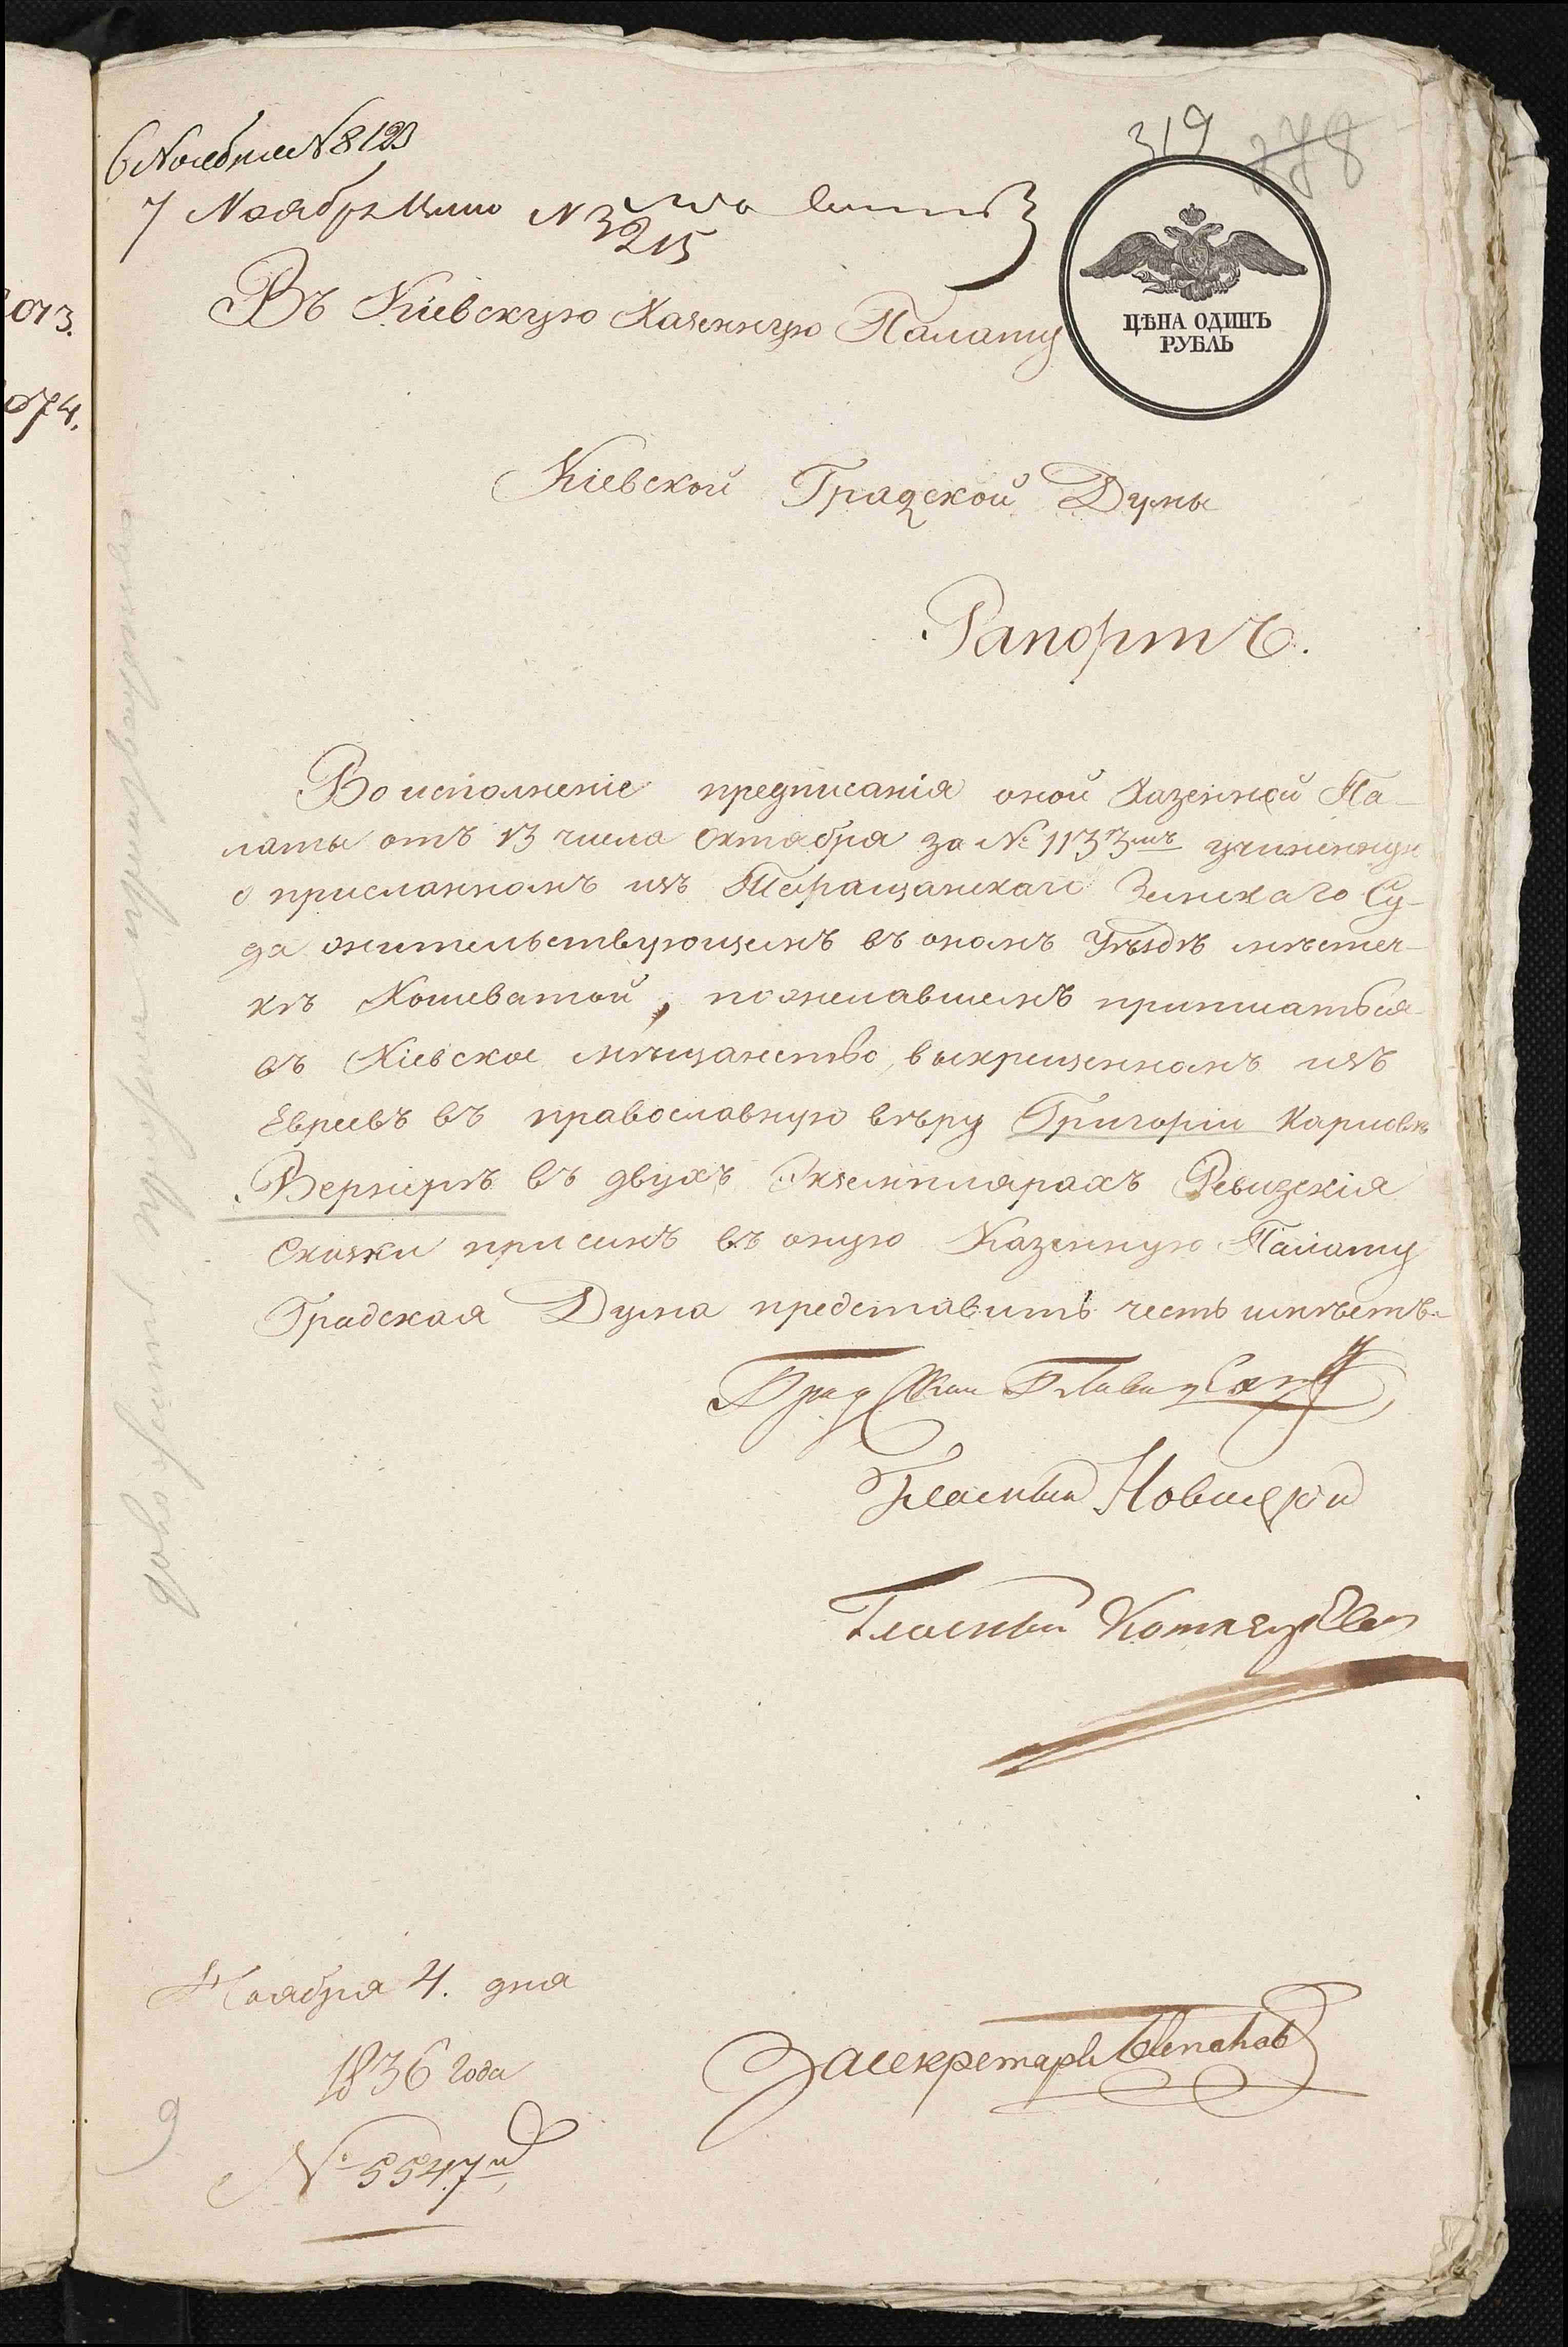 6 Ноября № 8123
7 Ноября
№ 3215
319
278
ЦѢНА ОДИНЪ
РУБЛЬ
Въ Кіевскую Казенную Палату
Кіевской Градской Думы
Рапортъ.
Во исполненіе предписанія оной Казенной Па-
латы отъ 13 числа Октября за № 1133мъ учиненную
о присланномъ изъ Таращанскаго Земскаго Су-
да жительствующемъ въ ономъ Уѣздѣ мѣстеч-
кѣ Кошеватой, пожелавшемъ приписаться
въ Кіевское мѣщанство, выкрещенномъ изъ
Евреевъ въ православную вѣру Григоріи Карловѣ
Вернерѣ въ двухъ Экземплярахъ Ревизскія
Сказки при семъ въ оную Казенную Палату
Градская Дума представить честь имѣетъ.
Град Глава
Гласный Новицкій
Гласный
Ноября 4. дня
1836 года
№ 5547й
За секретаря Степанов
9
073.
074.